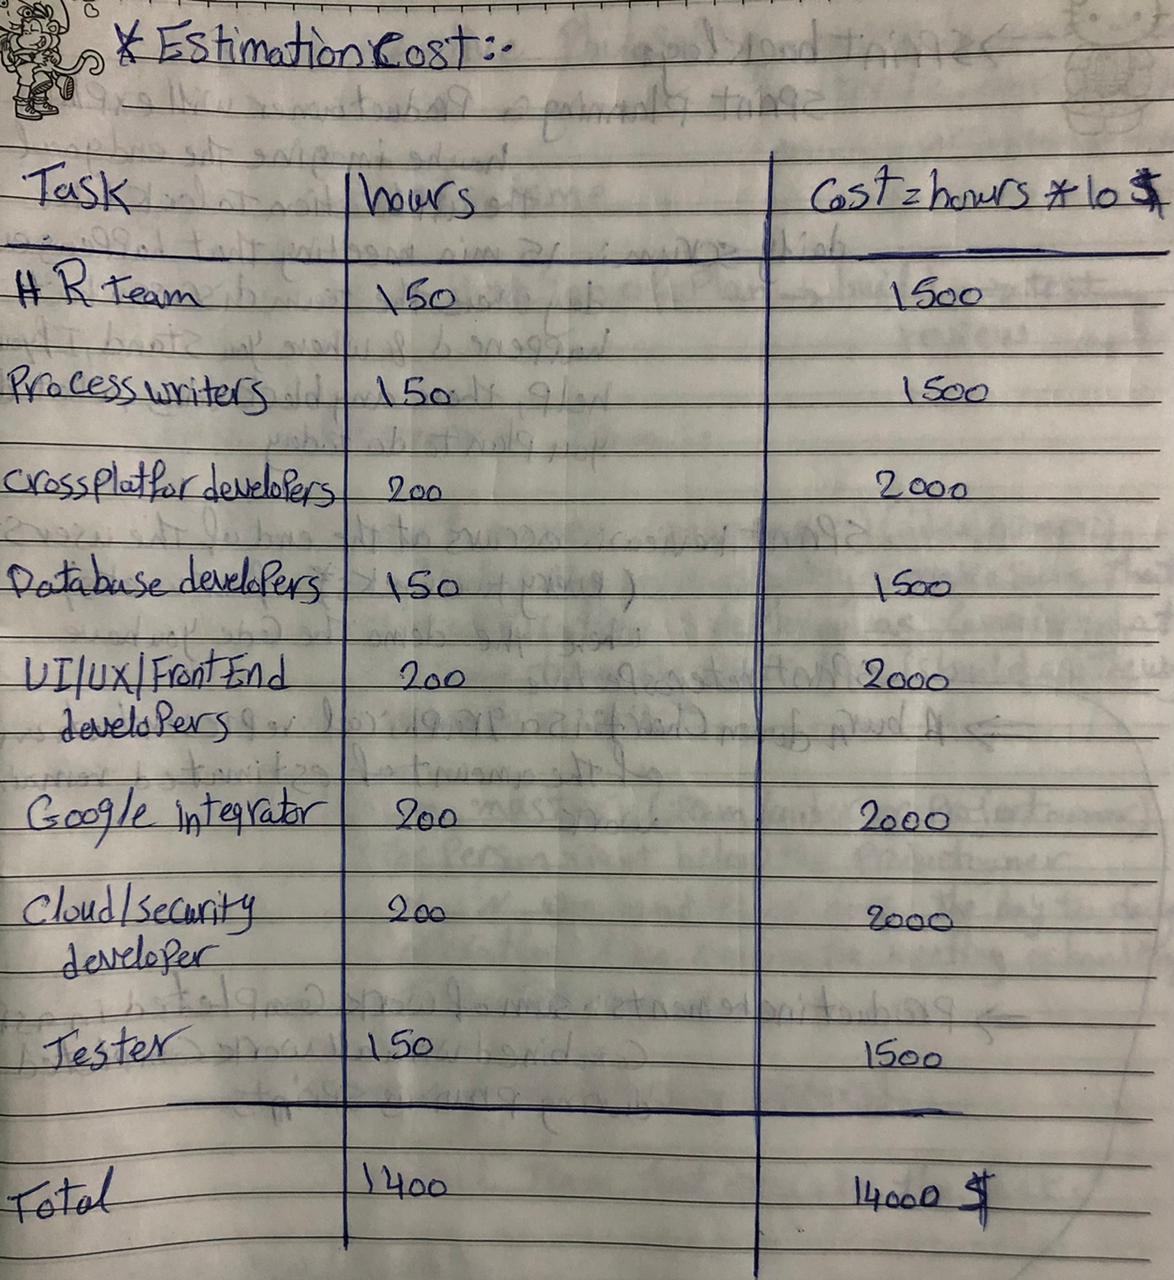 * Estimation Cost:-
Task hours Cost = hours * 10 $
HR team 150 1500
Process writers 150 1500
crossplatfor developers 200 2000
Database developers 150 1500
UI/UX/FrontEnd 200 2000
developers
Google integrator 200 2000
Cloud/security 200 2000
developer
Tester 150 1500
Total 1400 14000 $